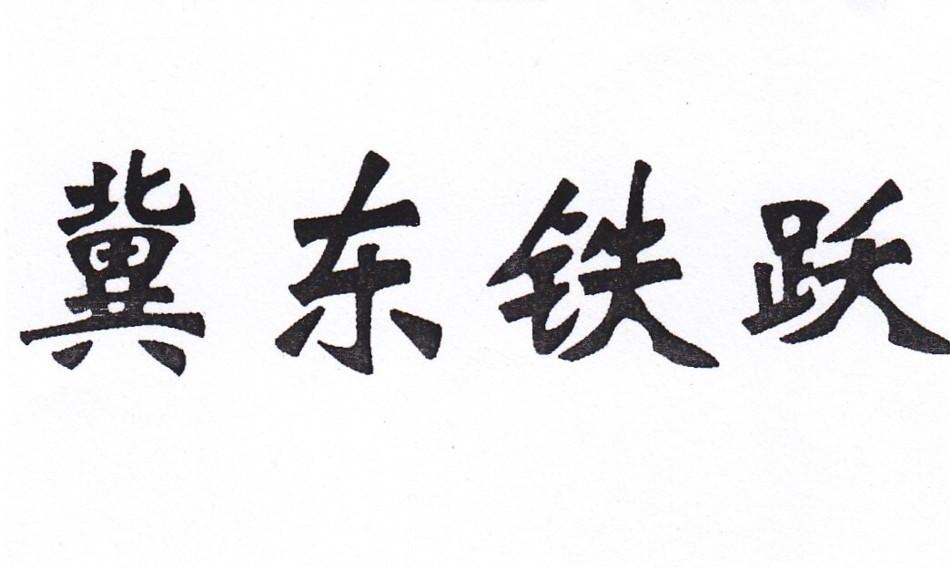 冀东铁跃